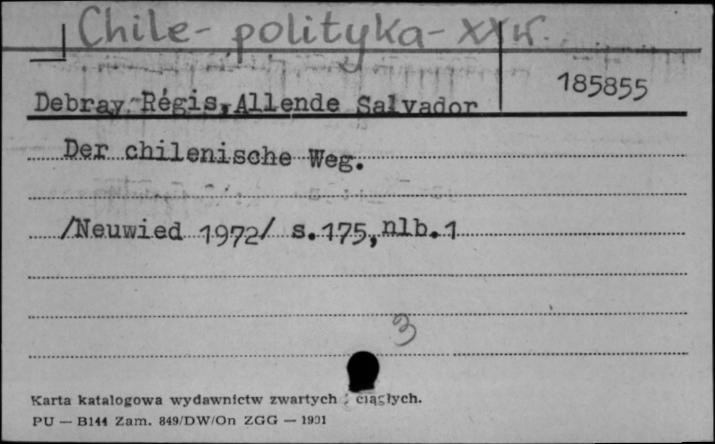 Chile - polityka - XX w.
185855
Debray Régis, Allende Salvador
Der chilenische Weg.
/Neuwied 1972/ s.175, nlb.1
3
Karta katalogowa wydawnictw zwartych i ciągłych.
PU — B144 Zam. 849/DW/On ZGG — 1931